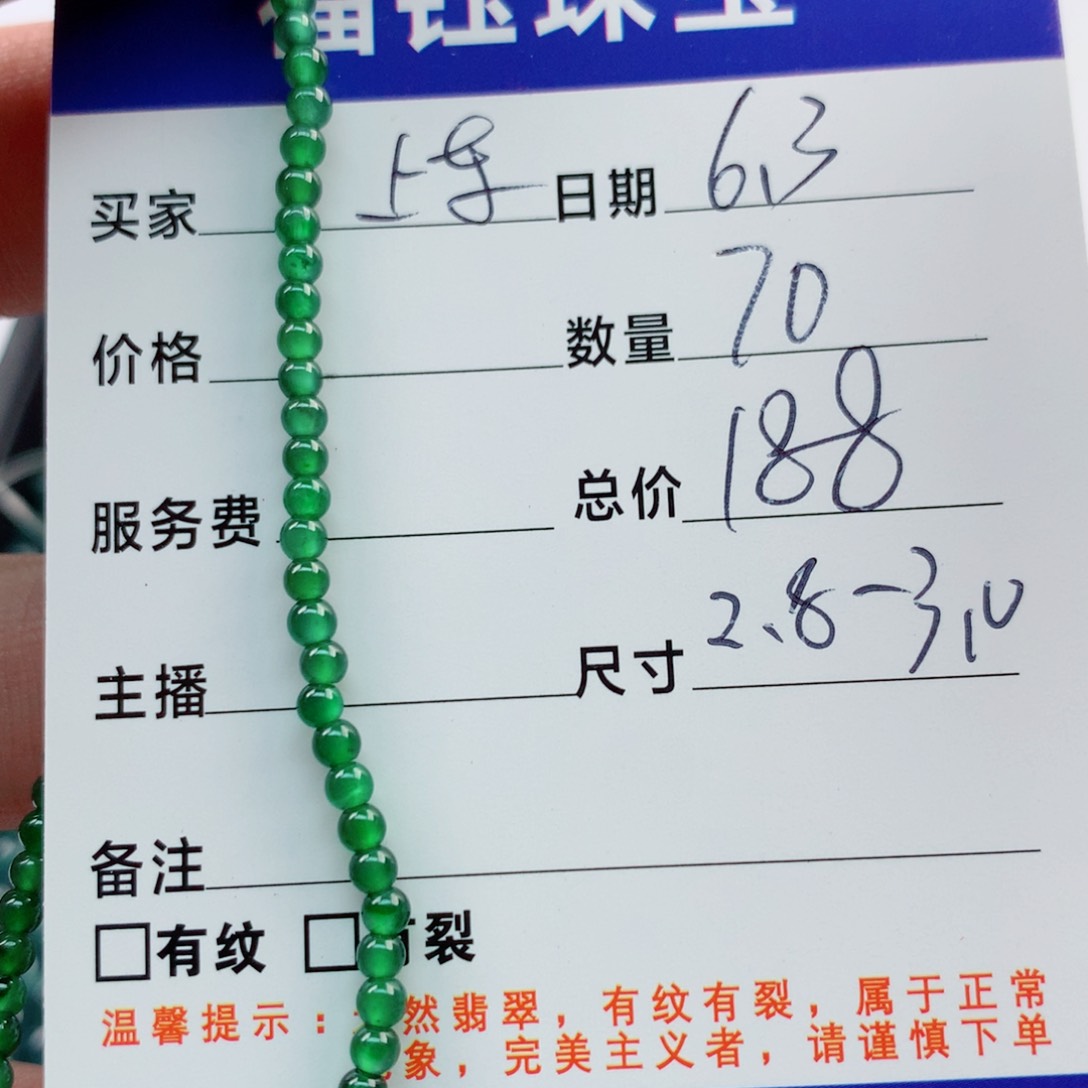 钰珠宝
买家 上车 日期 6.3
价格 数量 70
服务费 总价 188
主播 尺寸 2.8-3.0
备注
□有纹 □有裂
温馨提示：天然翡翠，有纹有裂，属于正常
象，完美主义者，请谨慎下单